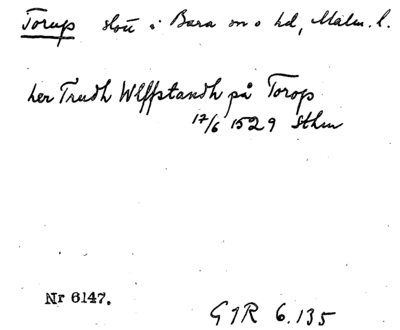 Torup slott i Bara sn o hd, Malm. l.
her Trudh Wlffstandh på Torop
17/6 1529 Sthm
Nr 6147.
G1R 6.135